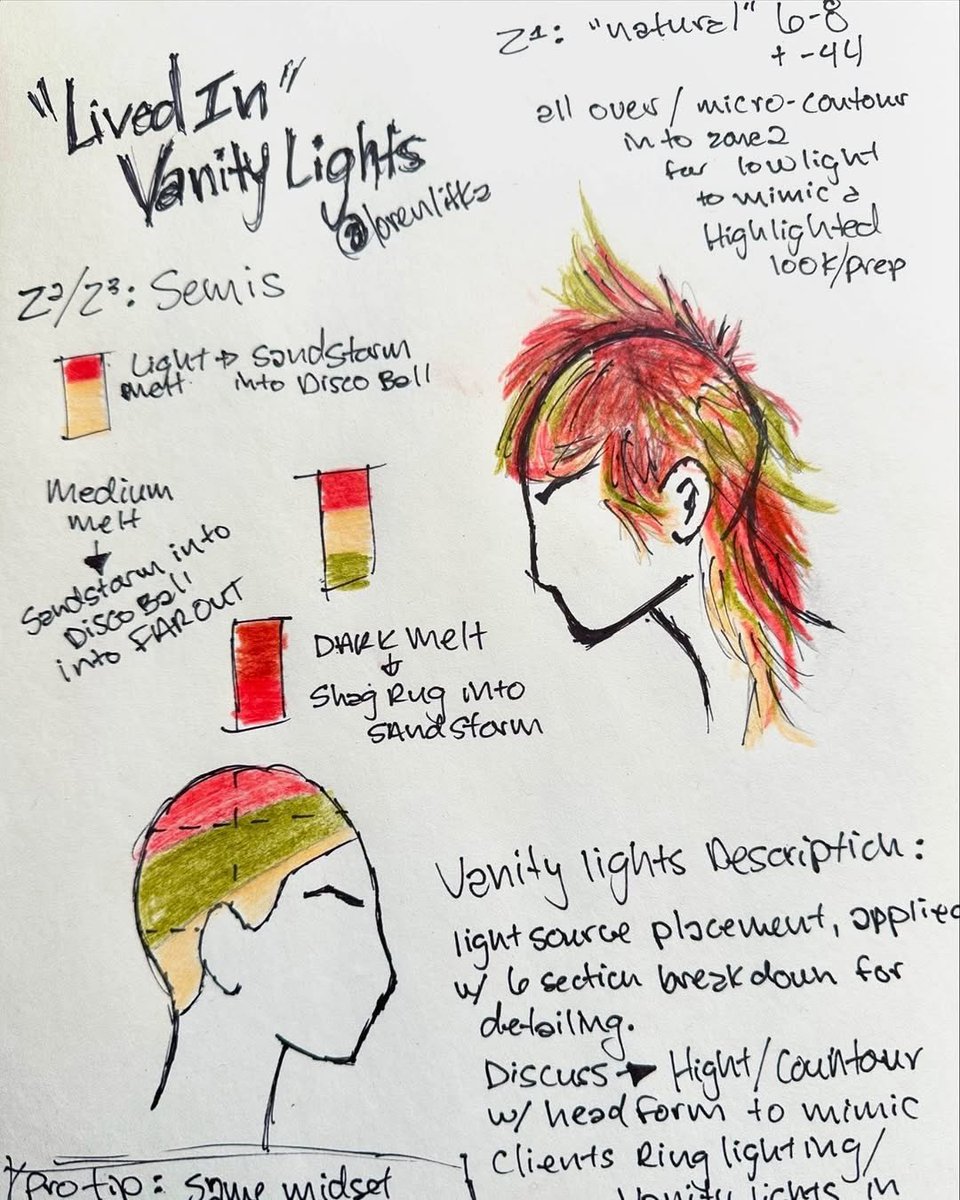 "Lived In"
Vanity Lights
@lorenlitka
Z1: "natural" 6-8
+ -44
all over / micro-contour
into zone2
for lowlight
to mimic a
Highlighted
look/prep
Z2/Z3: Semis
Light → Sandstorm
melt. into Disco Ball
Medium
melt
Sandstorm into
Disco Ball
into FAR OUT
DARK melt
Shag Rug into
SAndstorm
Vanity lights Description:
light source placement, applied
w/ 6 section breakdown for
detailing.
Discuss → Hight/Countour
w/ head form to mimic
clients Ring lighting/
Vanity lights in
Pro tip: Same midset